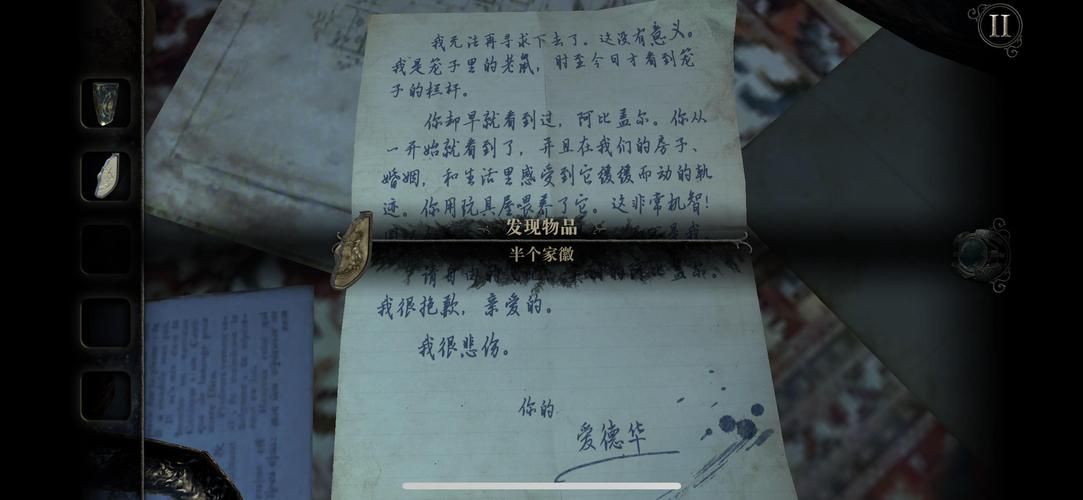 我无法再寻求下去了。这没有意义。
我是笼子里的老鼠，时至今日才看到笼
子的栏杆。
你却早就看到过，阿比盖尔。你从
一开始就看到了，并且在我们的房子、
婚姻，和生活里感受到它缓缓而动的轨
迹。你用玩具屋喂养了它。这非常机智！
发现物品
半个家徽
我很抱歉，亲爱的。
我很悲伤。
你的
爱德华